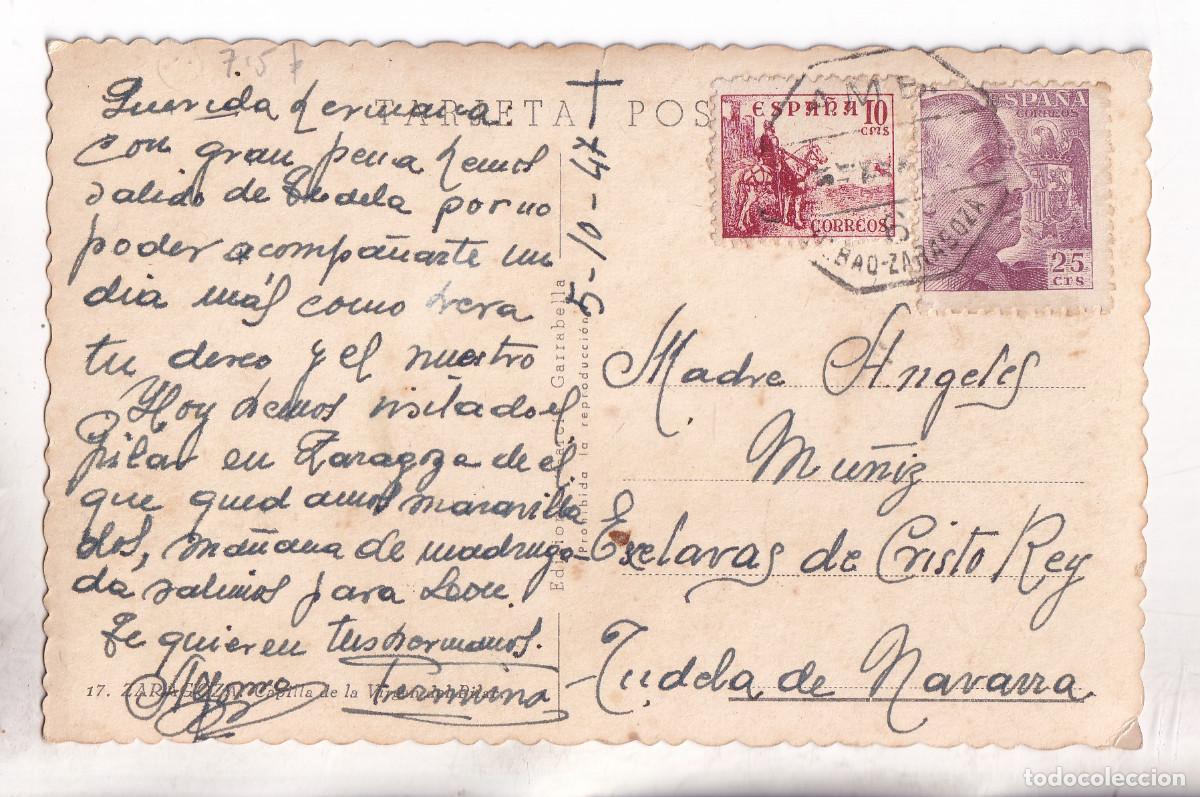 7'5 f
TARJETA POS
†
5-10-47
Querida hermana
con gran pena hemos
salido de Tudela por no
poder acompañarte un
dia más como hera
tu deseo y el nuestro
Hoy hemos visitado el
Pilar en Zaragoza de el
que quedamos maravilla
dos, mañana de madruga-
da salimos para Leon.
Te quieren tus hermanos.
Fermina
17. ZARAGOZA. Capilla de la Virgen del Pilar
Ediciones García Garrabella
Prohibida la reproducción
ESPAÑA 10
cms
CORREOS
ESPAÑA
CORREOS
25
CTS
AMB
BAO-ZARAGOZA
Madre Angeles
Muñiz
Esclavas de Cristo Rey
Tudela de Navarra
todocoleccion